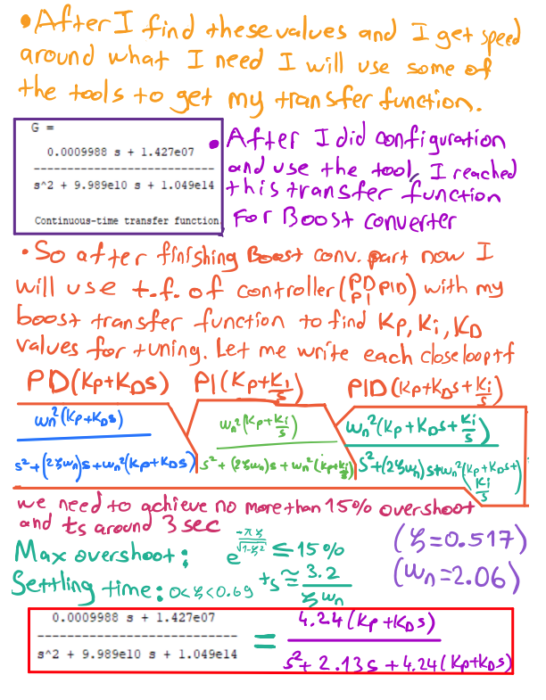 •After I find these values and I get speed
around what I need I will use some of
the tools to get my transfer function.
G =
0.0009988 s + 1.427e07
---------------------------
s^2 + 9.989e10 s + 1.049e14
Continuous-time transfer function
•After I did configuration
and use the tool, I reached
this transfer function
For Boost converter
•So after finishing Boost conv. part now I
will use t.f. of controller (PD PI PID) with my
boost transfer function to find Kp, Ki, KD
values for tuning. Let me write each closeloop tf
PD(Kp+KDs) PI(Kp+Ki/s) PID(Kp+KDs+Ki/s)
ωn²(Kp+KDs) / s²+(2ζωn)s+ωn²(Kp+KDs)
ωn²(Kp+Ki/s) / s²+(2ζωn)s+ωn²(Kp+Ki/s)
ωn²(Kp+KDs+Ki/s) / s²+(2ζωn)s+ωn²(Kp+KDs+Ki/s)
we need to achieve no more than 15% overshoot
and ts around 3 sec
Max overshoot: e^(-πζ/√(1-ζ²)) ≤ 15% (ζ=0.517)
Settling time: 0<ζ<0.69 ts ≅ 3.2/ζωn (ωn=2.06)
0.0009988 s + 1.427e07
---------------------------
s^2 + 9.989e10 s + 1.049e14
= 4.24(Kp+KDs) / s²+2.13s+4.24(Kp+KDs)